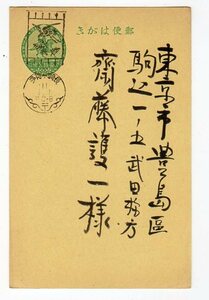 郵便はがき
東京市豊島區
駒込一ノ五 武田様方
齋藤護一様